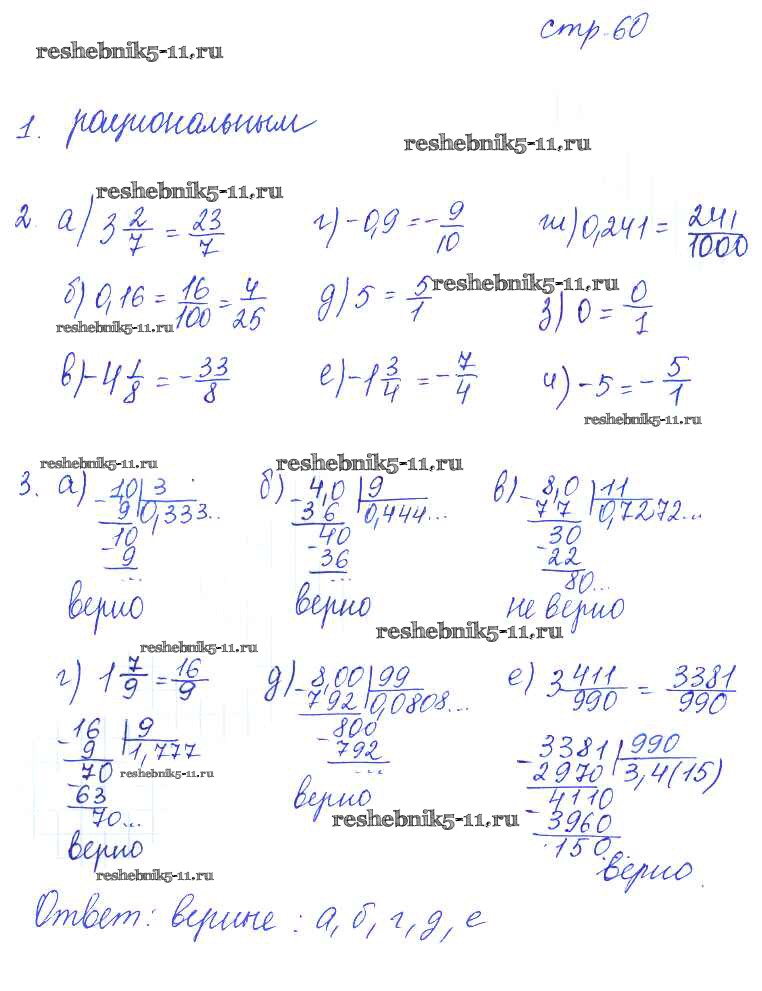 стр. 60
reshebnik5-11.ru
1. рациональным
reshebnik5-11.ru
reshebnik5-11.ru
2. а) 3 2/7 = 23/7 г) -0,9 = -9/10 ж) 0,241 = 241/1000
б) 0,16 = 16/100 = 4/25 д) 5 = 5/1 reshebnik5-11.ru з) 0 = 0/1
reshebnik5-11.ru
в) -4 1/8 = -33/8 е) -1 3/4 = -7/4 и) -5 = -5/1
reshebnik5-11.ru
reshebnik5-11.ru reshebnik5-11.ru
3. а) - 10 | 3 б) - 4,0 | 9 в) - 8,0 | 11
9 0,333... 36 0,444... 77 0,7272...
10 40 30
- 9 - 36 - 22
... ... 80...
верно верно не верно
reshebnik5-11.ru
reshebnik5-11.ru
г) 1 7/9 = 16/9 д) - 8,00 | 99 е) 3 411/990 = 3381/990
792 0,0808...
- 16 | 9 800 - 3381 | 990
9 1,777 - 792 2970 3,4(15)
70 reshebnik5-11.ru ... 4110
- 63 верно - 3960
70... reshebnik5-11.ru 150...
верно верно.
reshebnik5-11.ru
Ответ: верные: а, б, г, д, е